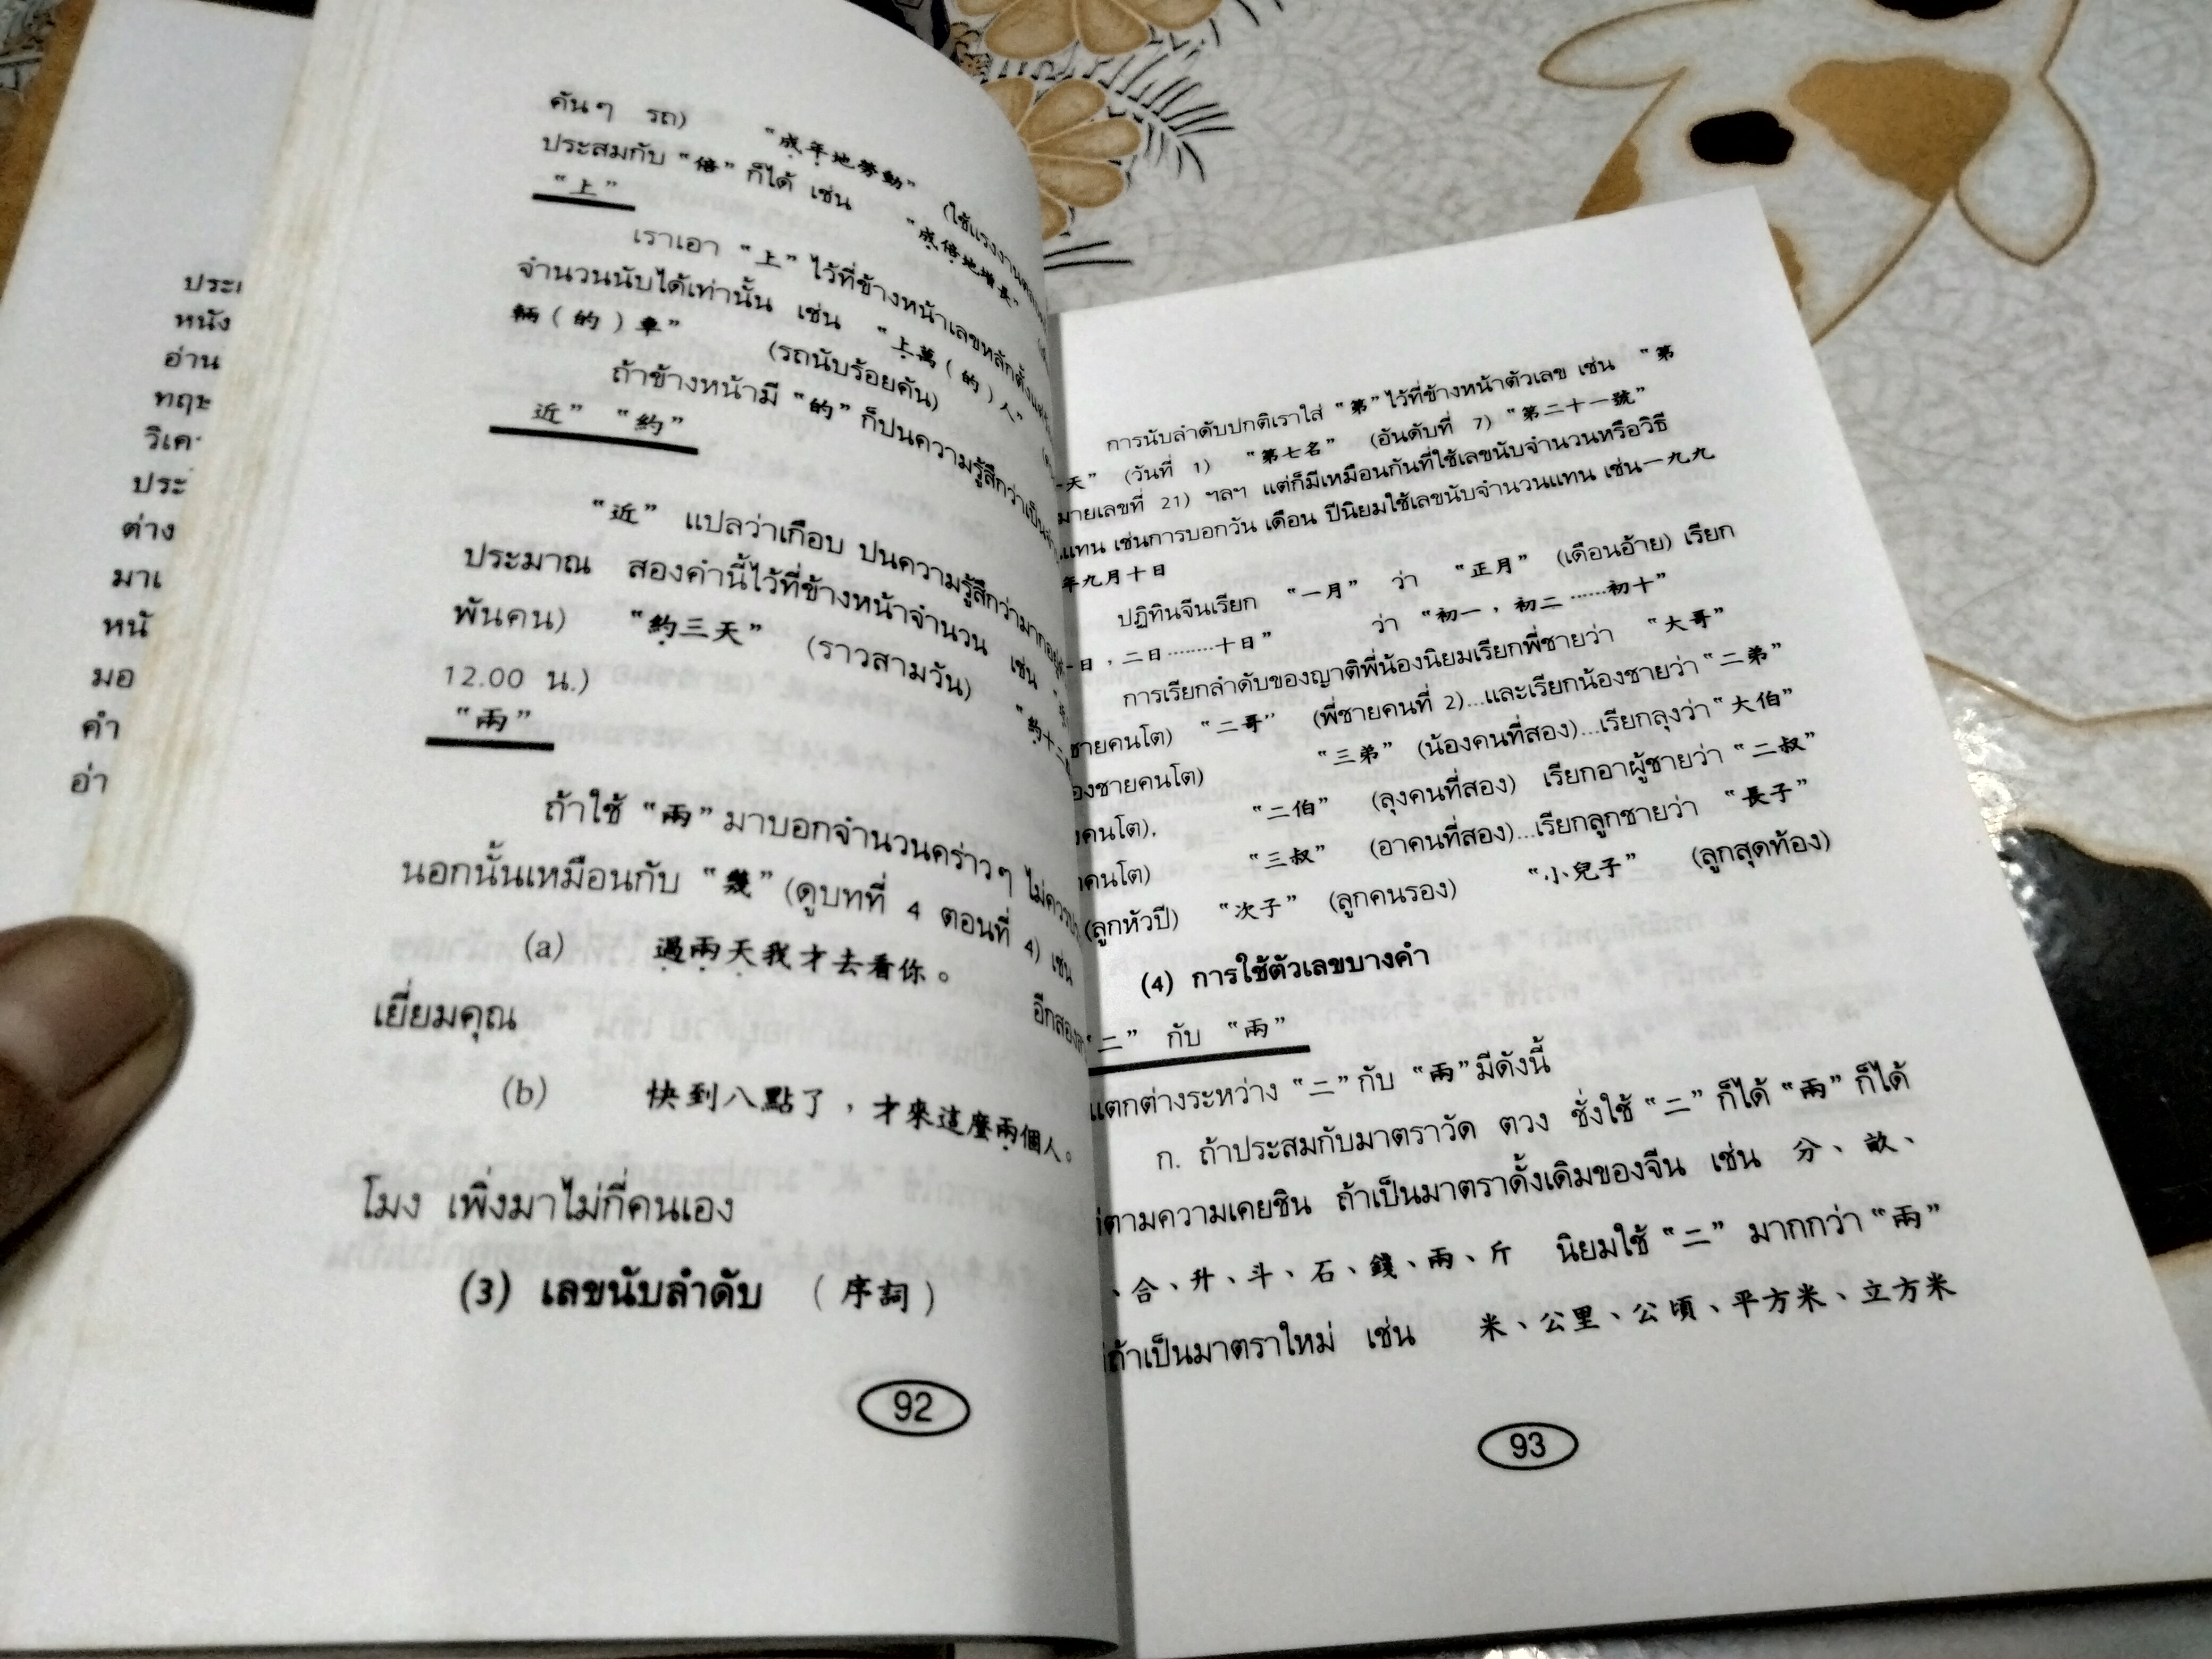 ประเ
หนัง
อ่าน
ทฤษ
วิเค
ประ
ต่าง
มาเ
หนั
มอ
คำ
อ่า
คันๆ รถ) "成年地勞動" (ใช้แรงงาน
ประสมกับ "倍" ก็ได้ เช่น "成倍地增長"
"上"
เราเอา "上" ไว้ที่ข้างหน้าเลขหลักตั้งแต่
จำนวนนับได้เท่านั้น เช่น "上萬(的)人"
輛(的)車" (รถนับร้อยคัน)
ถ้าข้างหน้ามี "的" ก็ปนความรู้สึกว่าเป็น
近" "約"
"近" แปลว่าเกือบ ปนความรู้สึกว่ามาก
ประมาณ สองคำนี้ไว้ที่ข้างหน้าจำนวน เช่น
พันคน) "約三天" (ราวสามวัน) "約十二
12.00 น.)
"兩"
ถ้าใช้ "兩" มาบอกจำนวนคร่าวๆ ไม่ควร
นอกนั้นเหมือนกับ "幾" (ดูบทที่ 4 ตอนที่ 4) เช่น
(a) 過兩天我才去看你。 อีกสอง
เยี่ยมคุณ
(b) 快到八點了，才來這麼兩個人。
โมง เพิ่งมาไม่กี่คนเอง
(3) เลขนับลำดับ (序詞)
92
การนับลำดับปกติเราใส่ "第" ไว้ที่ข้างหน้าตัวเลข เช่น "第
一天" (วันที่ 1) "第七名" (อันดับที่ 7) "第二十一號"
มายเลขที่ 21) ฯลฯ แต่ก็มีเหมือนกันที่ใช้เลขนับจำนวนหรือวิธี
แทน เช่นการบอกวัน เดือน ปีนิยมใช้เลขนับจำนวนแทน เช่น一九九
年九月十日
ปฏิทินจีนเรียก "一月" ว่า "正月" (เดือนอ้าย) เรียก
一日，二日........十日" ว่า "初一，初二......初十"
การเรียกลำดับของญาติพี่น้องนิยมเรียกพี่ชายว่า "大哥"
ชายคนโต) "二哥" (พี่ชายคนที่ 2)...และเรียกน้องชายว่า "二弟"
องชายคนโต) "三弟" (น้องคนที่สอง)...เรียกลุงว่า "大伯"
คนโต), "二伯" (ลุงคนที่สอง) เรียกอาผู้ชายว่า "二叔"
คนโต) "三叔" (อาคนที่สอง)...เรียกลูกชายว่า "長子"
(ลูกหัวปี) "次子" (ลูกคนรอง) "小兒子" (ลูกสุดท้อง)
(4) การใช้ตัวเลขบางคำ
"二" กับ "兩"
แตกต่างระหว่าง "二" กับ "兩" มีดังนี้
ก. ถ้าประสมกับมาตราวัด ตวง ชั่งใช้ "二" ก็ได้ "兩" ก็ได้
ตามความเคยชิน ถ้าเป็นมาตราดั้งเดิมของจีน เช่น 分、畝、
、合、升、斗、石、錢、兩、斤 นิยมใช้ "二" มากกว่า "兩"
ถ้าเป็นมาตราใหม่ เช่น 米、公里、公頃、平方米、立方米
93